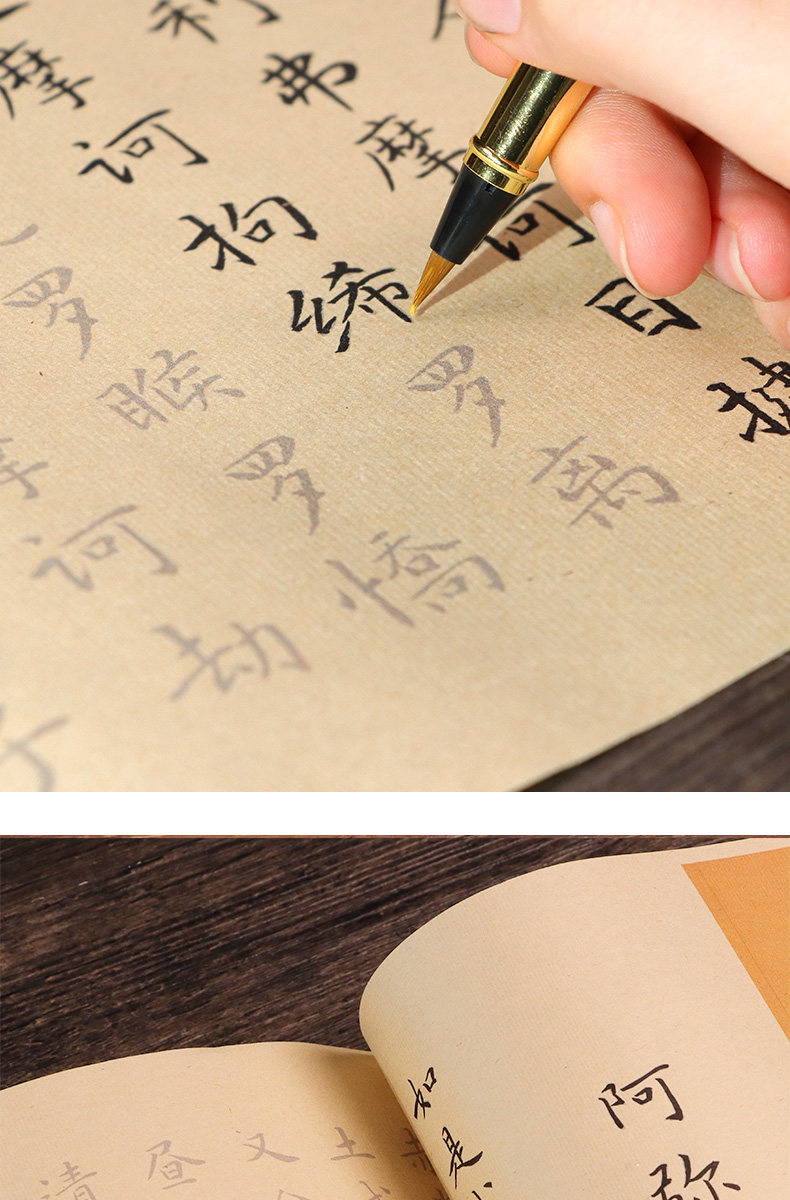 利弗摩诃目揵
摩诃拘𫄨罗离
罗睺罗憍
摩诃劫
阿弥
如是
土
又
昼
清